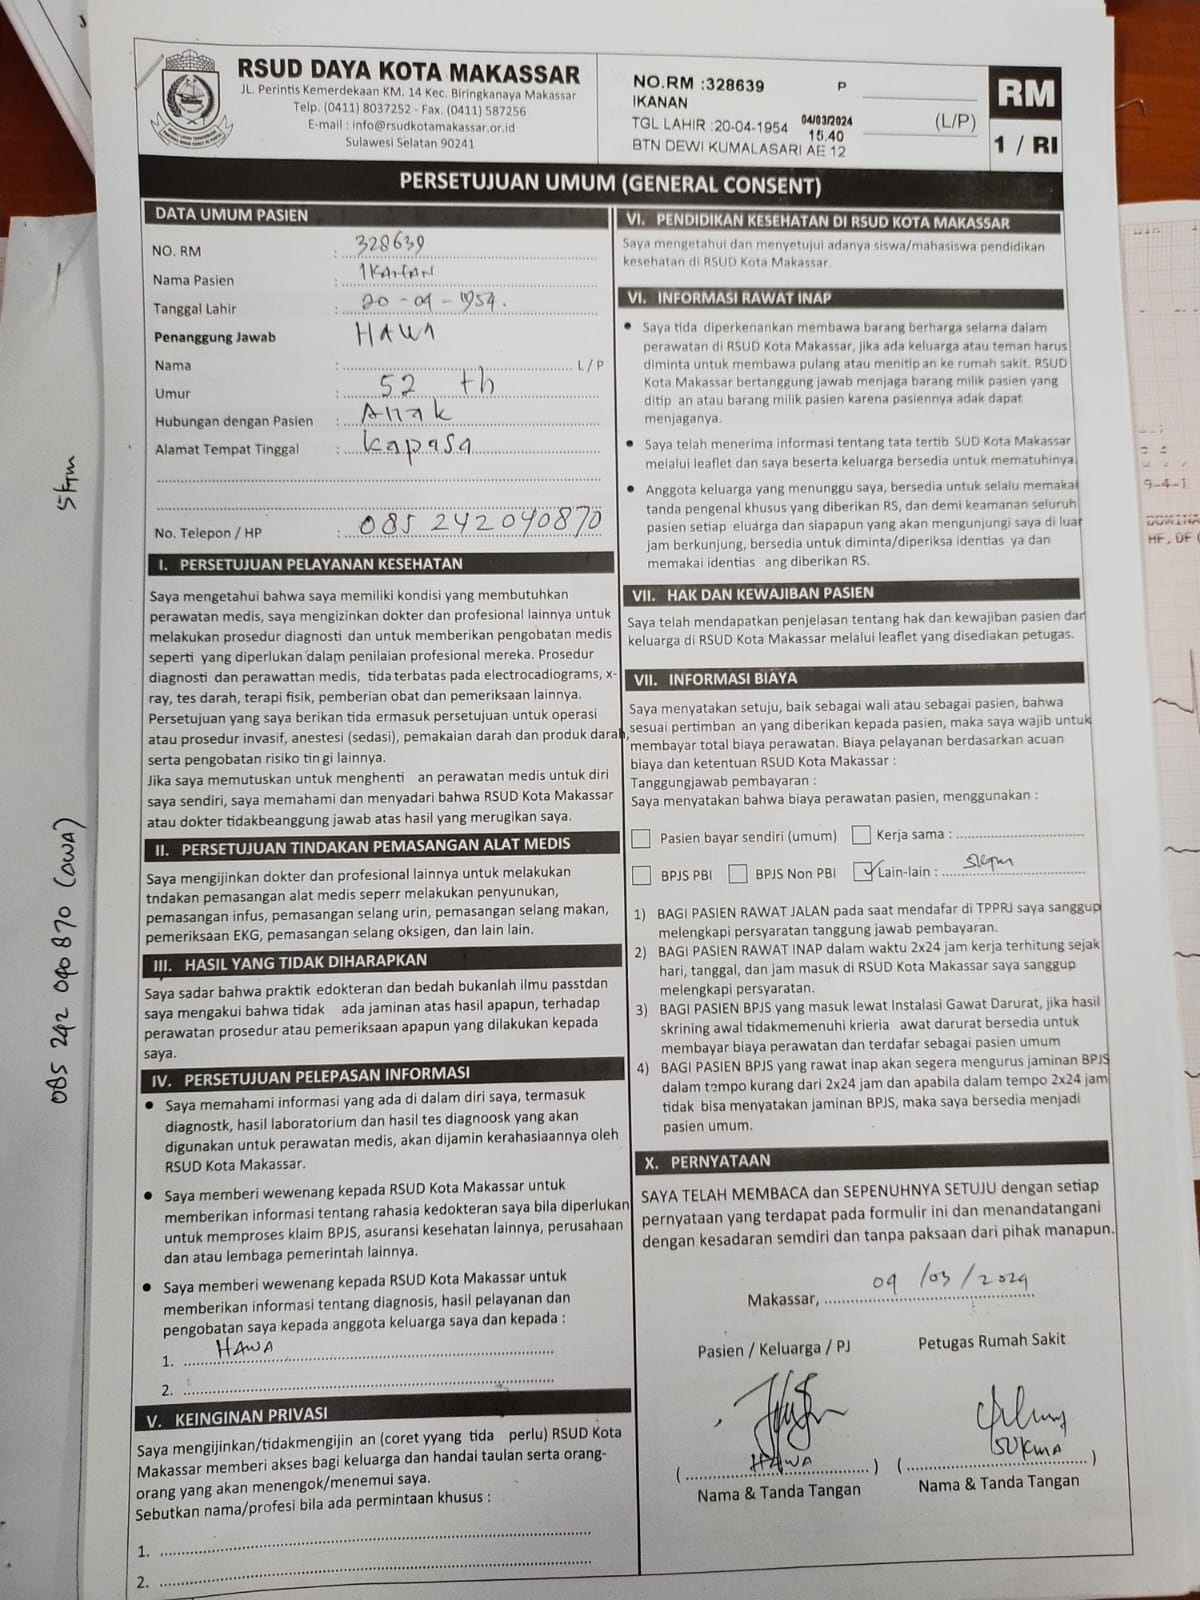 RSUD DAYA KOTA MAKASSAR
JL. Perintis Kemerdekaan KM. 14 Kec. Biringkanaya Makassar
Telp. (0411) 8037252 - Fax. (0411) 587256
E-mail : info@rsudkotamakassar.or.id
Sulawesi Selatan 90241
NO.RM :328639 P
IKANAN
TGL LAHIR :20-04-1954 04/03/2024 (L/P)
15.40
BTN DEWI KUMALASARI AE 12
RM
1 / RI
PERSETUJUAN UMUM (GENERAL CONSENT)
DATA UMUM PASIEN
NO. RM : 328639
Nama Pasien : IKANAN
Tanggal Lahir : 20-04-1954.
Penanggung Jawab HAWA
Nama : L/P
Umur : 52 th
Hubungan dengan Pasien : Anak
Alamat Tempat Tinggal : kapasa
No. Telepon / HP : 085 242040870
I. PERSETUJUAN PELAYANAN KESEHATAN
Saya mengetahui bahwa saya memiliki kondisi yang membutuhkan
perawatan medis, saya mengizinkan dokter dan profesional lainnya untuk
melakukan prosedur diagnosti dan untuk memberikan pengobatan medis
seperti yang diperlukan dalam penilaian profesional mereka. Prosedur
diagnosti dan perawattan medis, tida terbatas pada electrocadiograms, x-
ray, tes darah, terapi fisik, pemberian obat dan pemeriksaan lainnya.
Persetujuan yang saya berikan tida ermasuk persetujuan untuk operasi
atau prosedur invasif, anestesi (sedasi), pemakaian darah dan produk darah,
serta pengobatan risiko tin gi lainnya.
Jika saya memutuskan untuk menghenti an perawatan medis untuk diri
saya sendiri, saya memahami dan menyadari bahwa RSUD Kota Makassar
atau dokter tidakbeanggung jawab atas hasil yang merugikan saya.
II. PERSETUJUAN TINDAKAN PEMASANGAN ALAT MEDIS
Saya mengijinkan dokter dan profesional lainnya untuk melakukan
tndakan pemasangan alat medis seperr melakukan penyunukan,
pemasangan infus, pemasangan selang urin, pemasangan selang makan,
pemeriksaan EKG, pemasangan selang oksigen, dan lain lain.
III. HASIL YANG TIDAK DIHARAPKAN
Saya sadar bahwa praktik edokteran dan bedah bukanlah ilmu passtdan
saya mengakui bahwa tidak ada jaminan atas hasil apapun, terhadap
perawatan prosedur atau pemeriksaan apapun yang dilakukan kepada
saya.
IV. PERSETUJUAN PELEPASAN INFORMASI
• Saya memahami informasi yang ada di dalam diri saya, termasuk
diagnostk, hasil laboratorium dan hasil tes diagnoosk yang akan
digunakan untuk perawatan medis, akan dijamin kerahasiaannya oleh
RSUD Kota Makassar.
• Saya memberi wewenang kepada RSUD Kota Makassar untuk
memberikan informasi tentang rahasia kedokteran saya bila diperlukan
untuk memproses klaim BPJS, asuransi kesehatan lainnya, perusahaan
dan atau lembaga pemerintah lainnya.
• Saya memberi wewenang kepada RSUD Kota Makassar untuk
memberikan informasi tentang diagnosis, hasil pelayanan dan
pengobatan saya kepada anggota keluarga saya dan kepada :
1. HAWA
2.
V. KEINGINAN PRIVASI
Saya mengijinkan/tidakmengijin an (coret yyang tida perlu) RSUD Kota
Makassar memberi akses bagi keluarga dan handai taulan serta orang-
orang yang akan menengok/menemui saya.
Sebutkan nama/profesi bila ada permintaan khusus :
1.
2.
VI. PENDIDIKAN KESEHATAN DI RSUD KOTA MAKASSAR
Saya mengetahui dan menyetujui adanya siswa/mahasiswa pendidikan
kesehatan di RSUD Kota Makassar.
VI. INFORMASI RAWAT INAP
• Saya tida diperkenankan membawa barang berharga selama dalam
perawatan di RSUD Kota Makassar, jika ada keluarga atau teman harus
diminta untuk membawa pulang atau menitip an ke rumah sakit. RSUD
Kota Makassar bertanggung jawab menjaga barang milik pasien yang
ditip an atau barang milik pasien karena pasiennya adak dapat
menjaganya.
• Saya telah menerima informasi tentang tata tertib SUD Kota Makassar
melalui leaflet dan saya beserta keluarga bersedia untuk mematuhinya.
• Anggota keluarga yang menunggu saya, bersedia untuk selalu memakai
tanda pengenal khusus yang diberikan RS, dan demi keamanan seluruh
pasien setiap eluarga dan siapapun yang akan mengunjungi saya di luar
jam berkunjung, bersedia untuk diminta/diperiksa identias ya dan
memakai identias ang diberikan RS.
VII. HAK DAN KEWAJIBAN PASIEN
Saya telah mendapatkan penjelasan tentang hak dan kewajiban pasien dan
keluarga di RSUD Kota Makassar melalui leaflet yang disediakan petugas.
VII. INFORMASI BIAYA
Saya menyatakan setuju, baik sebagai wali atau sebagai pasien, bahwa
sesuai pertimban an yang diberikan kepada pasien, maka saya wajib untuk
membayar total biaya perawatan. Biaya pelayanan berdasarkan acuan
biaya dan ketentuan RSUD Kota Makassar :
Tanggungjawab pembayaran :
Saya menyatakan bahwa biaya perawatan pasien, menggunakan :
Pasien bayar sendiri (umum) Kerja sama :
BPJS PBI BPJS Non PBI Lain-lain :
1) BAGI PASIEN RAWAT JALAN pada saat mendafar di TPPRJ saya sanggup
melengkapi persyaratan tanggung jawab pembayaran.
2) BAGI PASIEN RAWAT INAP dalam waktu 2x24 jam kerja terhitung sejak
hari, tanggal, dan jam masuk di RSUD Kota Makassar saya sanggup
melengkapi persyaratan.
3) BAGI PASIEN BPJS yang masuk lewat Instalasi Gawat Darurat, jika hasil
skrining awal tidakmemenuhi krieria awat darurat bersedia untuk
membayar biaya perawatan dan terdafar sebagai pasien umum
4) BAGI PASIEN BPJS yang rawat inap akan segera mengurus jaminan BPJS
dalam tempo kurang dari 2x24 jam dan apabila dalam tempo 2x24 jam
tidak bisa menyatakan jaminan BPJS, maka saya bersedia menjadi
pasien umum.
X. PERNYATAAN
SAYA TELAH MEMBACA dan SEPENUHNYA SETUJU dengan setiap
pernyataan yang terdapat pada formulir ini dan menandatangani
dengan kesadaran semdiri dan tanpa paksaan dari pihak manapun.
Makassar, 04 /03 /2024
Pasien / Keluarga / PJ Petugas Rumah Sakit
(HAWA) (SUKMA)
Nama & Tanda Tangan Nama & Tanda Tangan
085 242 040 870 (AWA)
9-4-1
HF, DF